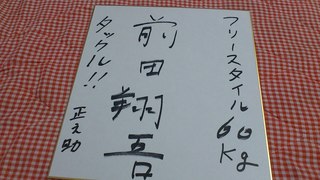 フリースタイル60kg
前田翔吾
タックル!!
正之助